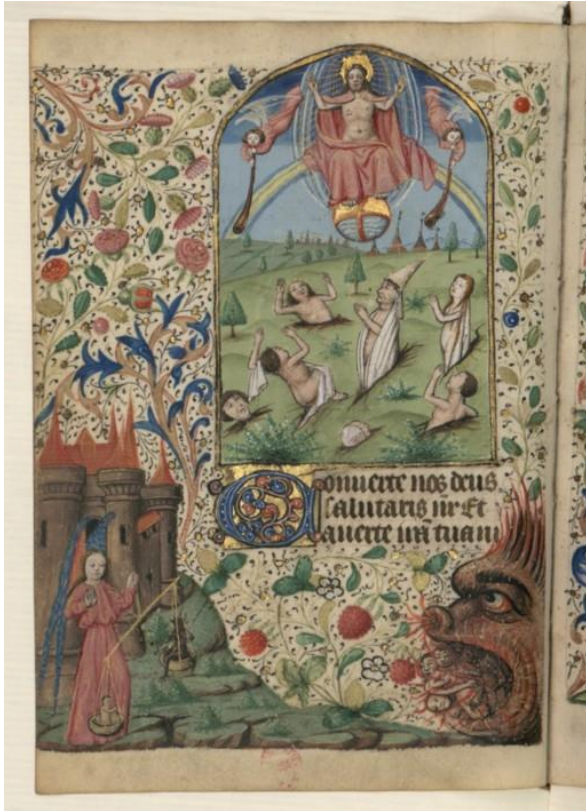 Conuerte nos deus
salutaris nr̃ Et
auerte irã tuam